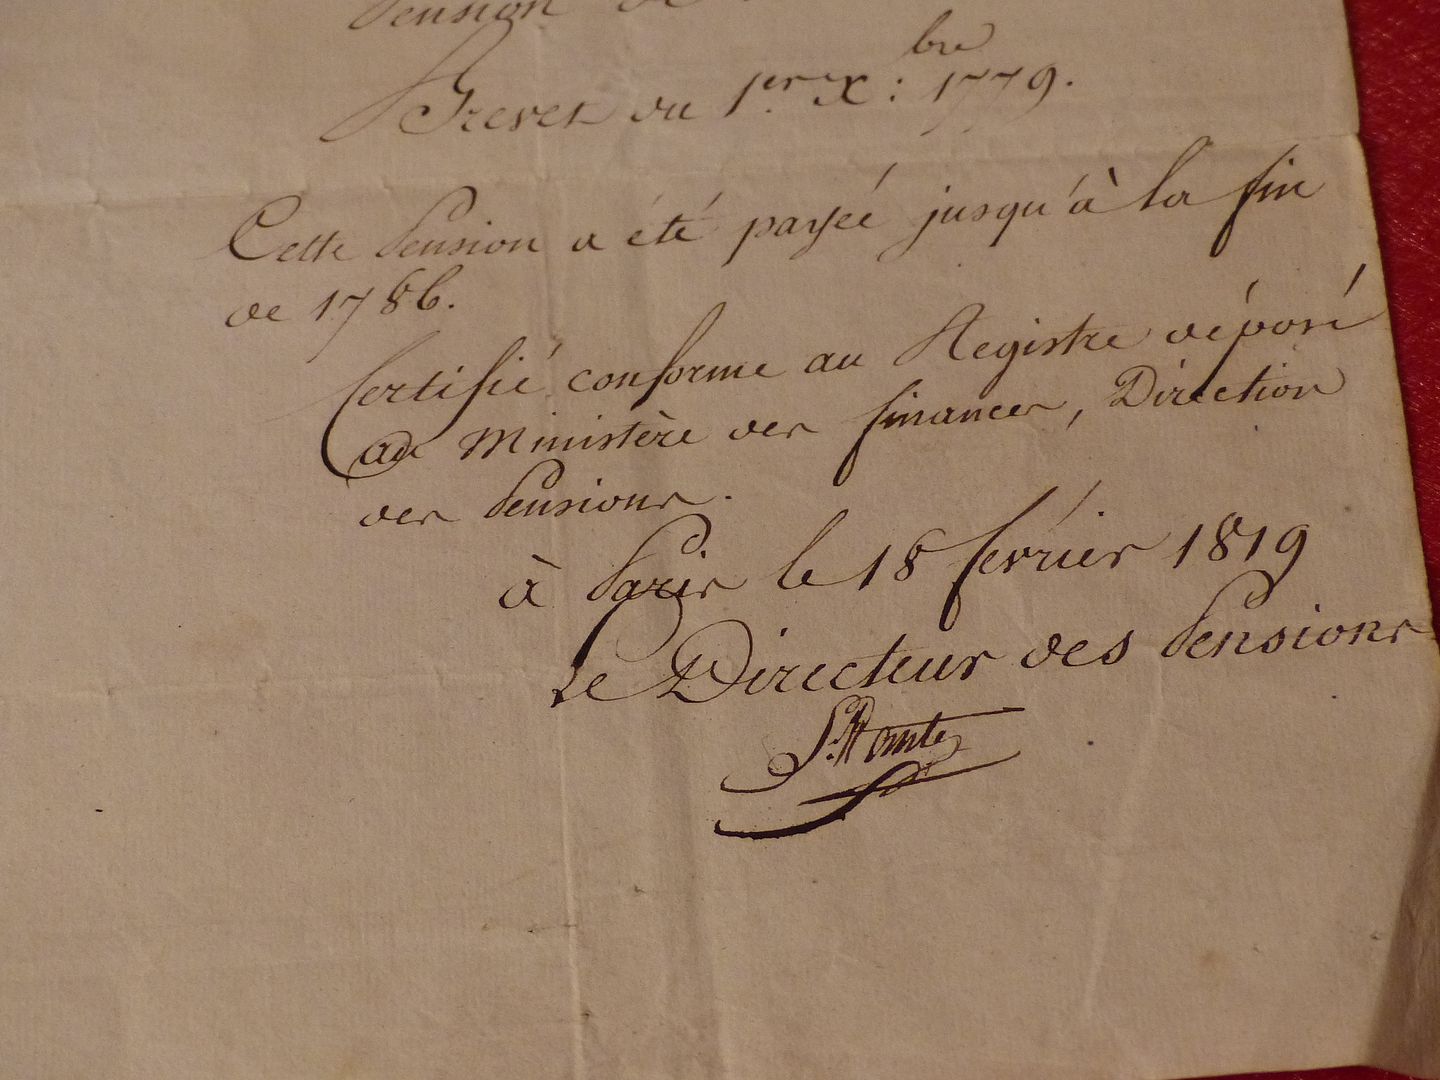 Pension de
Brevet du 1er Xbre: 1779.
Cette Pension a été payée jusqu'à la fin
de 1786.
Certifié conforme au Registre déposé
au Ministère des finances, Direction
des Pensions.
à Paris le 18 février 1819
Le Directeur des Pensions